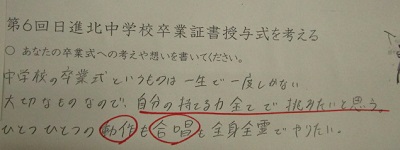 第6回日進北中学校卒業証書授与式を考える
○ あなたの卒業式への考えや想いを書いてください。
中学校の卒業式というものは一生で一度しかない
大切なものなので、自分の持てる力全てで挑みたいと思う。
ひとつひとつの動作も合唱も全身全霊でやりたい。